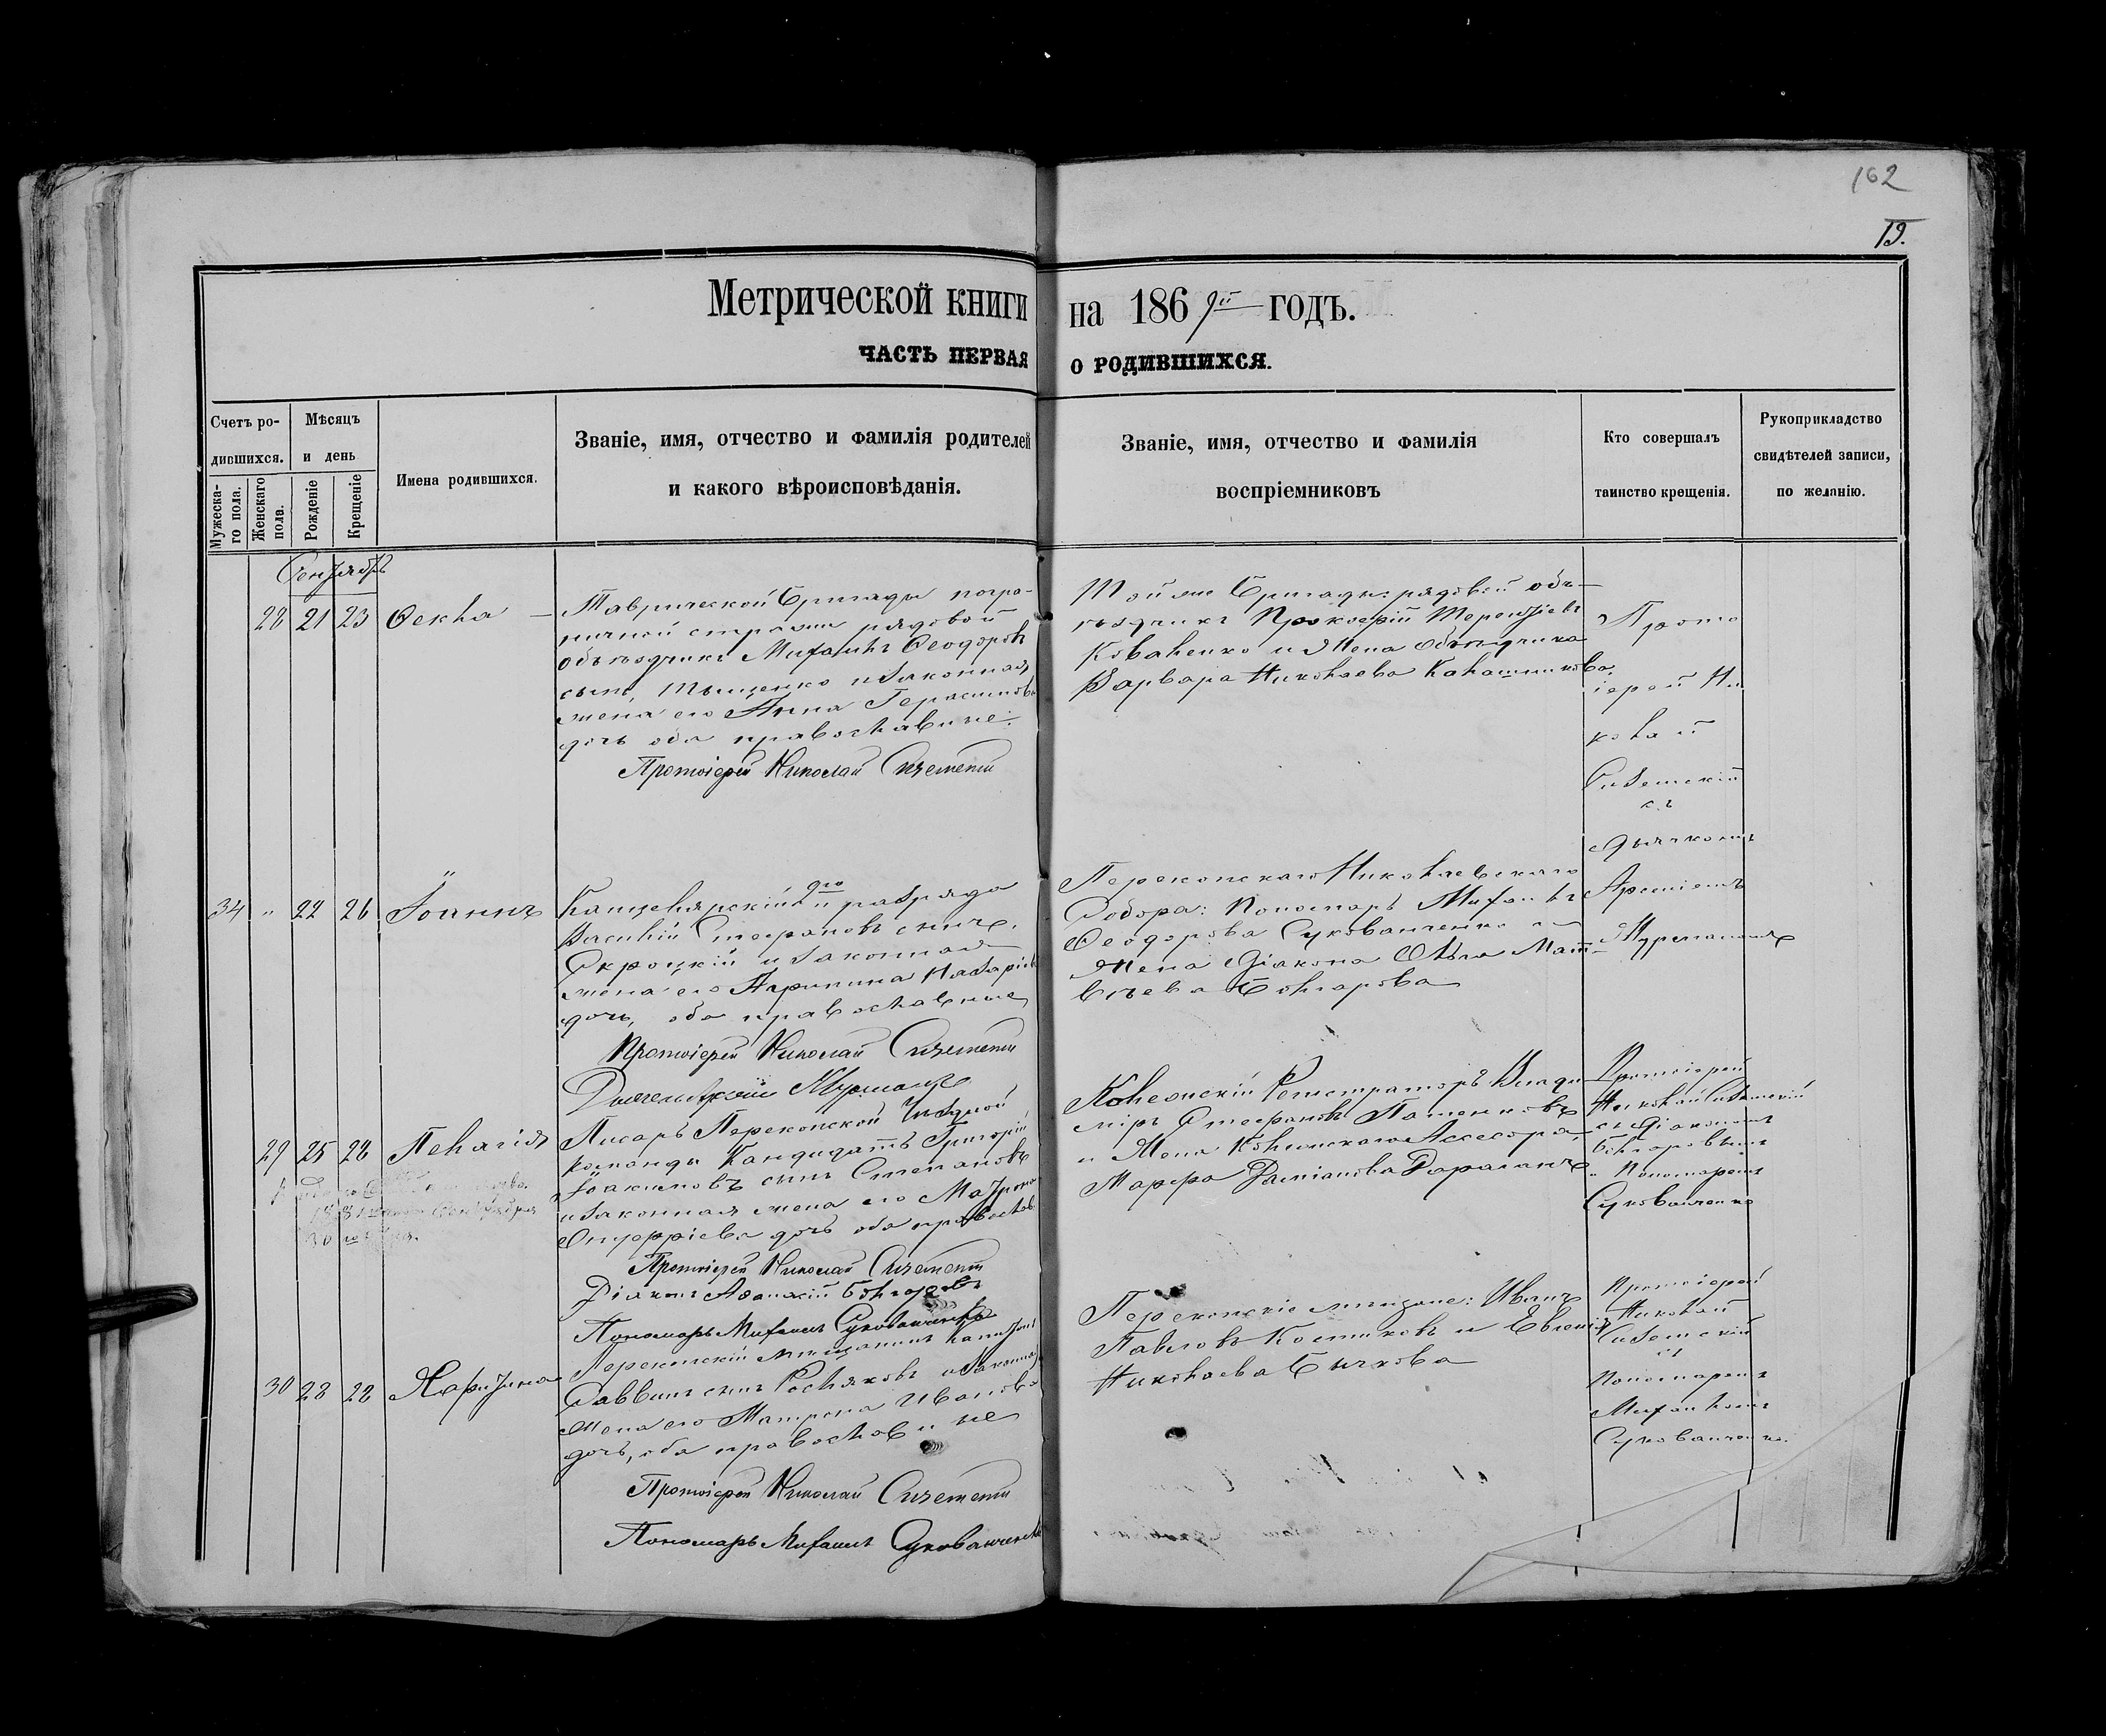 162
19.
Метрической книги на 1869й годъ.
ЧАСТЬ ПЕРВАЯ О РОДИВШИХСЯ.
Счетъ родившихся.
Мужескаго пола.
Женскаго пола.
Мѣсяцъ и день
Рожденіе
Крещеніе
Имена родившихся.
Званіе, имя, отчество и фамилія родителей
и какого вѣроисповѣданія.
Званіе, имя, отчество и фамилія
воспріемниковъ
Кто совершалъ
таинство крещенія.
Рукоприкладство
свидѣтелей записи,
по желанію.
Сентябрь
28 21 23 Ѳекла
Таврической Бригады погра-
ничной стражи рядовой
объѣздчикъ Михаилъ Ѳеодоровъ
сынъ, Тыщенко и законная
жена его Анна Герасимова
дочь оба православные.
Протоіерей Николай
Той же Бригады: рядовой объ-
ѣздчикъ Прокофій Терентіевъ
Коваленко и жена объѣздчика
Варвара Николаева Калашникова
Прото
іерей Ни
колай
съ
дьячкомъ
Арсеніемъ
34 " 22 26 Іоаннъ
Канцелярскій 2го разряда
Василій Стефановъ сынъ,
Скроцкій и законная
жена его Агрипина Назаріева
дочь, оба православные
Протоіерей Николай
Перекопскаго Николаевскаго
Собора: Пономарь Михаилъ
Ѳеодорова Суковатченко и
жена Діакона Ольга Мат-
вѣева Болгарова
29 25 28 Пелагія
Писарь Перекопской Уѣздной
команды Кандидатъ Григорій
Іоакимовъ сынъ Степановъ
и законная жена его Матрона
дочь оба православ
Протоіерей Николай
Діаконъ Болгаровъ
Пономарь Михаилъ Суковатченко
Колежскій Регистраторъ Влади
міръ Стефановъ
и жена Колежскаго Ассесора,
Марфа Даміанова
Протоіерей
Николай
съ Діакономъ
Болгаровымъ
и Пономаремъ
Суковатченко
30 28 28 Харитина
Перекопскій мѣщанинъ
Саввинъ сынъ и законная
жена его Матрона Иванова
дочь, оба православные
Протоіерей Николай
Пономарь Михаилъ Суковатченко
Перекопскіе мѣщане: Иванъ
Павловъ Костиковъ и Евгенія
Николаева Бычкова
Протоіерей
Николай
съ
Пономаремъ
Михаиломъ
Суковатченко.